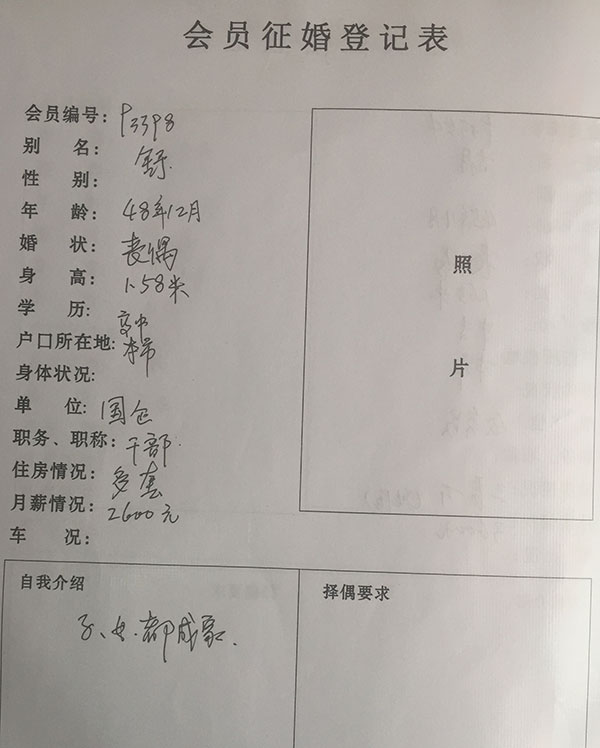 会员征婚登记表
会员编号: P3398
别 名:
性 别:
年 龄: 48年12月
婚 状: 丧偶
身 高: 1.58米
学 历: 高中
户口所在地: 本市
身体状况:
单 位: 国仓
职务、职称: 干部
住房情况: 多套
月薪情况: 2600元
车 况:
照
片
自我介绍
子、女.都成家.
择偶要求